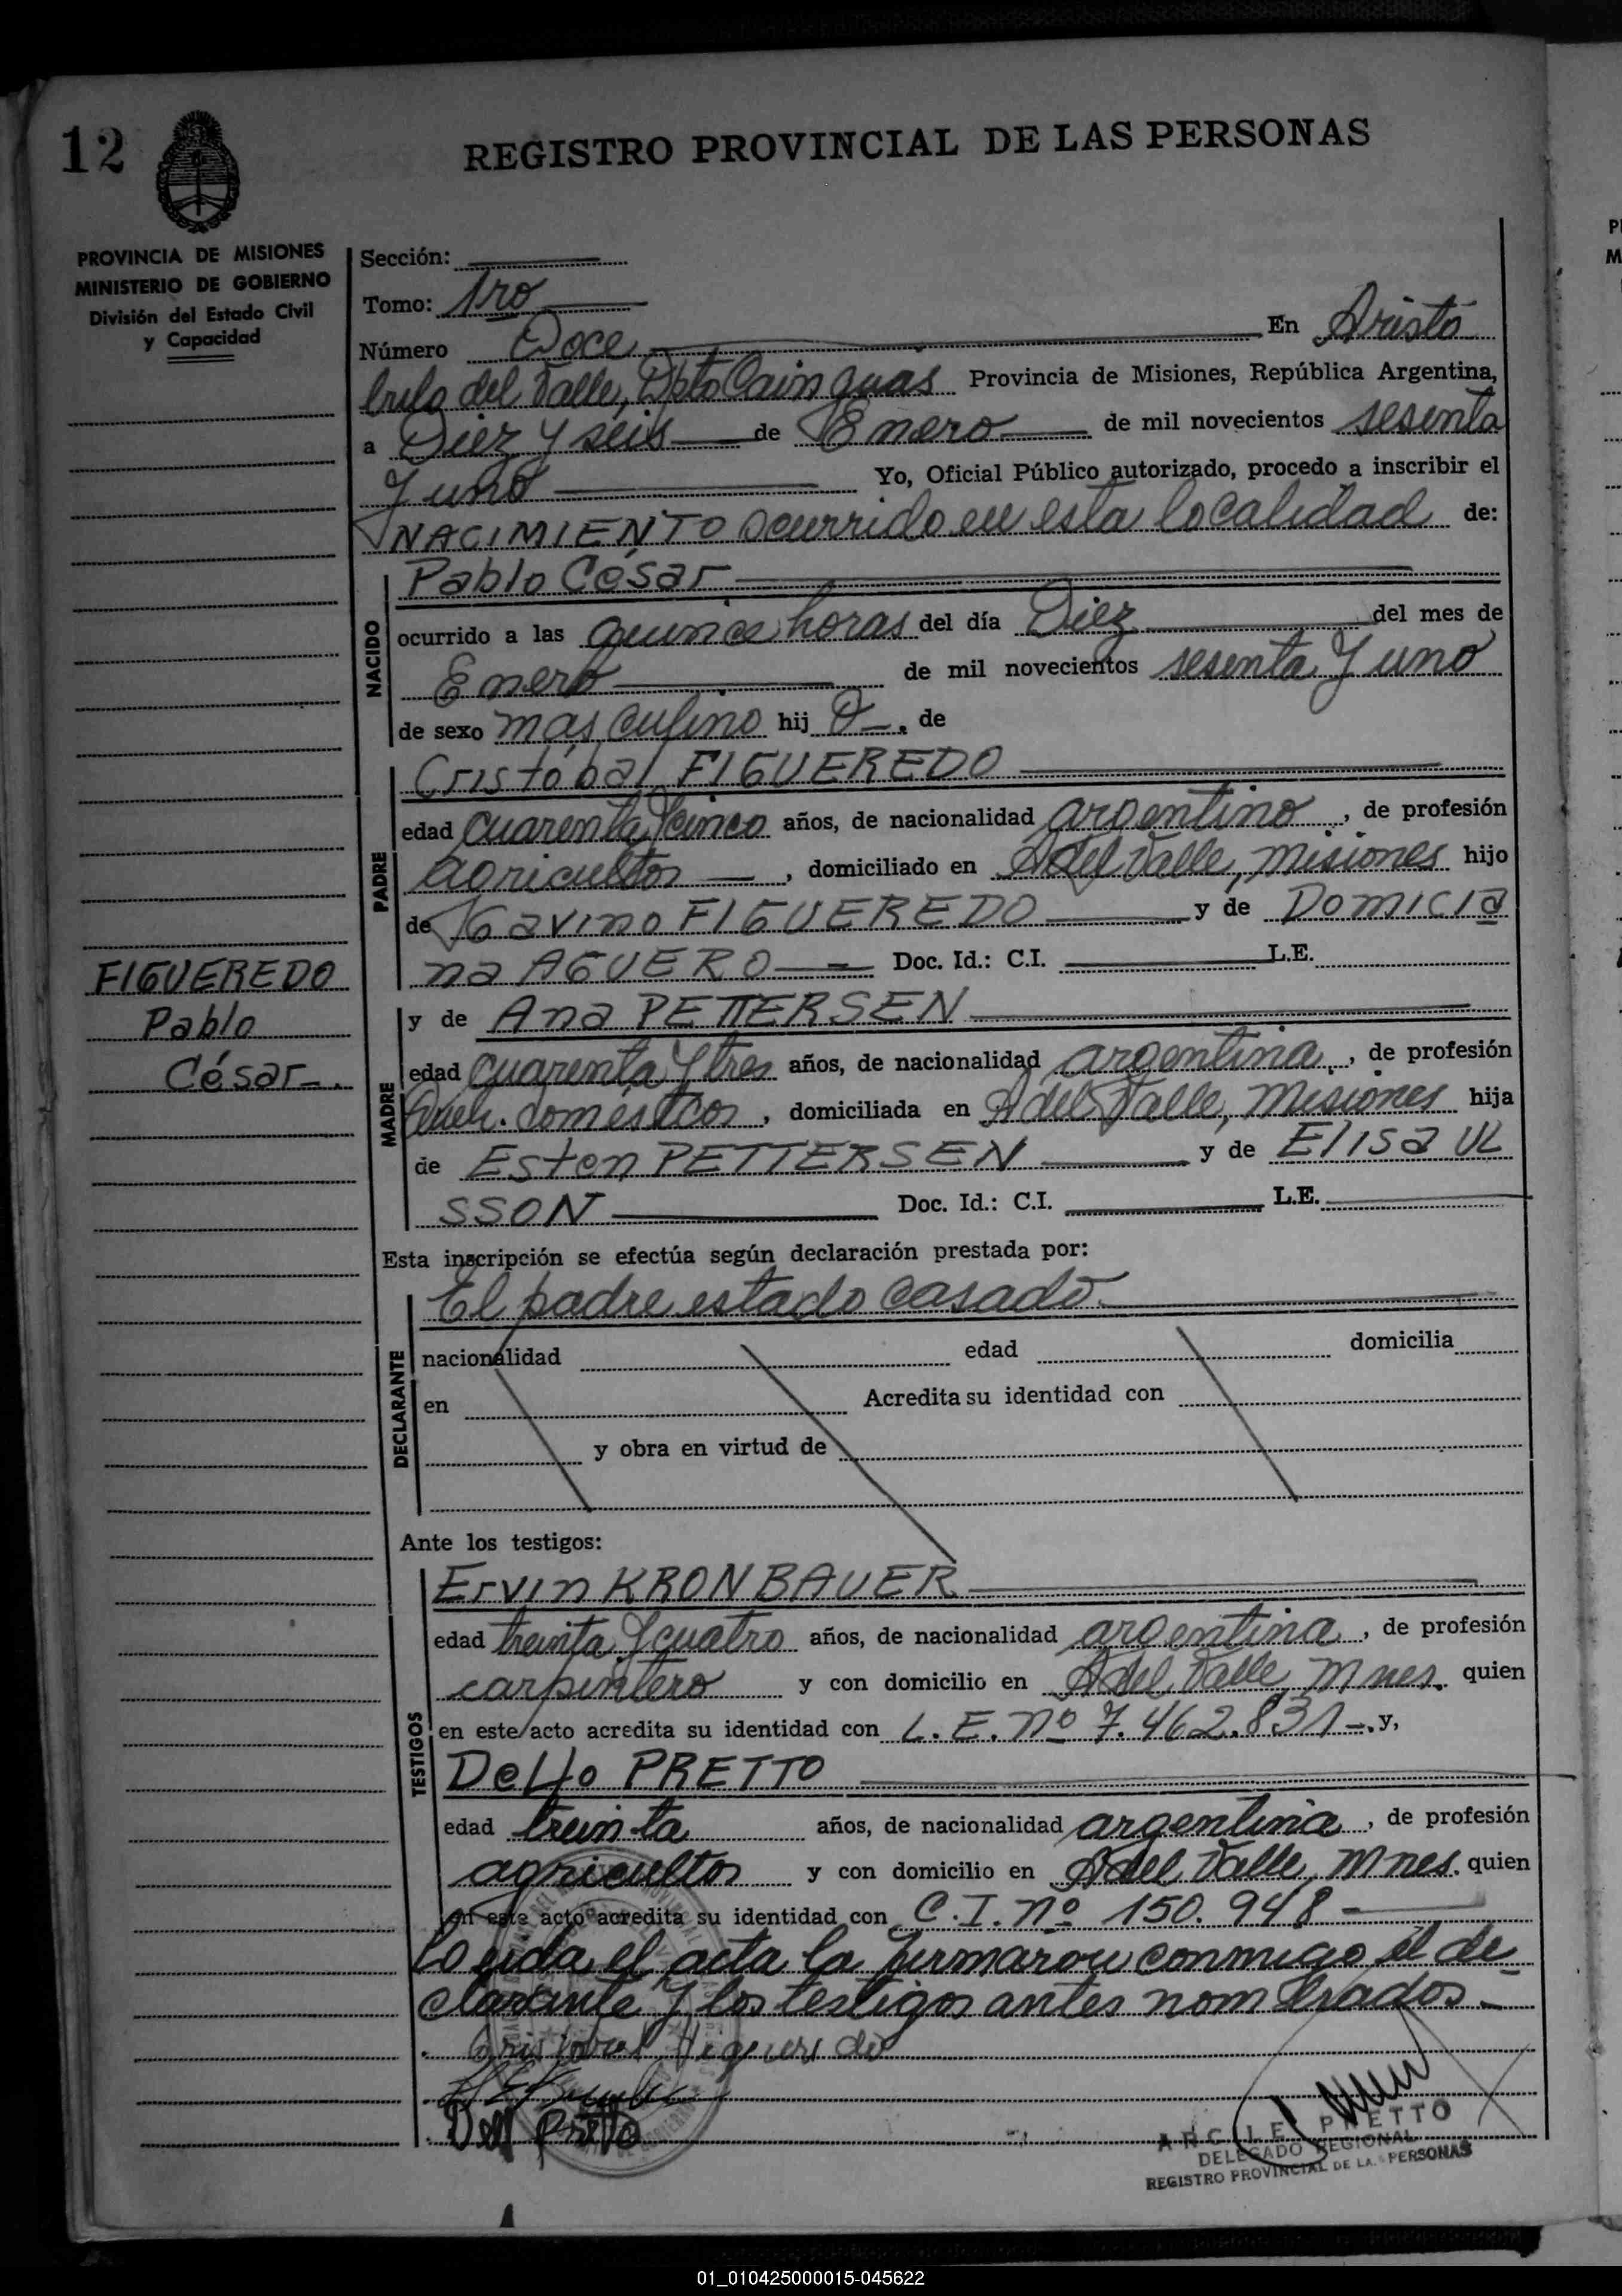 12
REGISTRO PROVINCIAL DE LAS PERSONAS
PROVINCIA DE MISIONES
MINISTERIO DE GOBIERNO
División del Estado Civil
y Capacidad
Sección:
Tomo: 1ro
Número Doce En Aristó
bulo del Valle, Dpto Cainguás Provincia de Misiones, República Argentina,
a Diez y seis de Enero de mil novecientos sesenta
y uno Yo, Oficial Público autorizado, procedo a inscribir el
NACIMIENTO ocurrido en esta localidad de:
NACIDO
Pablo César
ocurrido a las quince horas del día Diez del mes de
Enero de mil novecientos sesenta y uno
de sexo masculino hij o-. de
PADRE
Cristóbal FIGUEREDO
edad cuarenta y cinco años, de nacionalidad argentino, de profesión
agricultor, domiciliado en A del Valle, Misiones hijo
de Gavino FIGUEREDO y de Domicia
na AGUERO Doc. Id.: C.I. L.E.
FIGUEREDO
Pablo
César-.
MADRE
y de Ana PETTERSEN
edad cuarenta y tres años, de nacionalidad argentina, de profesión
domésticos, domiciliada en A del Valle, Misiones hija
de Esten PETTERSEN y de Elisa UL
SSON Doc. Id.: C.I. L.E.
Esta inscripción se efectúa según declaración prestada por:
DECLARANTE
El padre estado casado.
nacionalidad edad domicilia
en Acredita su identidad con
y obra en virtud de
Ante los testigos:
TESTIGOS
Ervin KRONBAUER
edad treinta y cuatro años, de nacionalidad argentina, de profesión
carpintero y con domicilio en A del Valle, Mnes. quien
en este acto acredita su identidad con L.E. nº 7.462.831-. y,
Delfo PRETTO
edad treinta años, de nacionalidad argentina, de profesión
agricultor y con domicilio en A del Valle, Mnes. quien
en este acto acredita su identidad con C.I. nº 150.948-
Leida el acta la firmaron conmigo el de_
clarante y los testigos antes nombrados.-
Cristobal Figueredo
Delf Pretto
PRETTO
DELEGADO REGIONAL
REGISTRO PROVINCIAL DE LAS PERSONAS
01_010425000015-045622